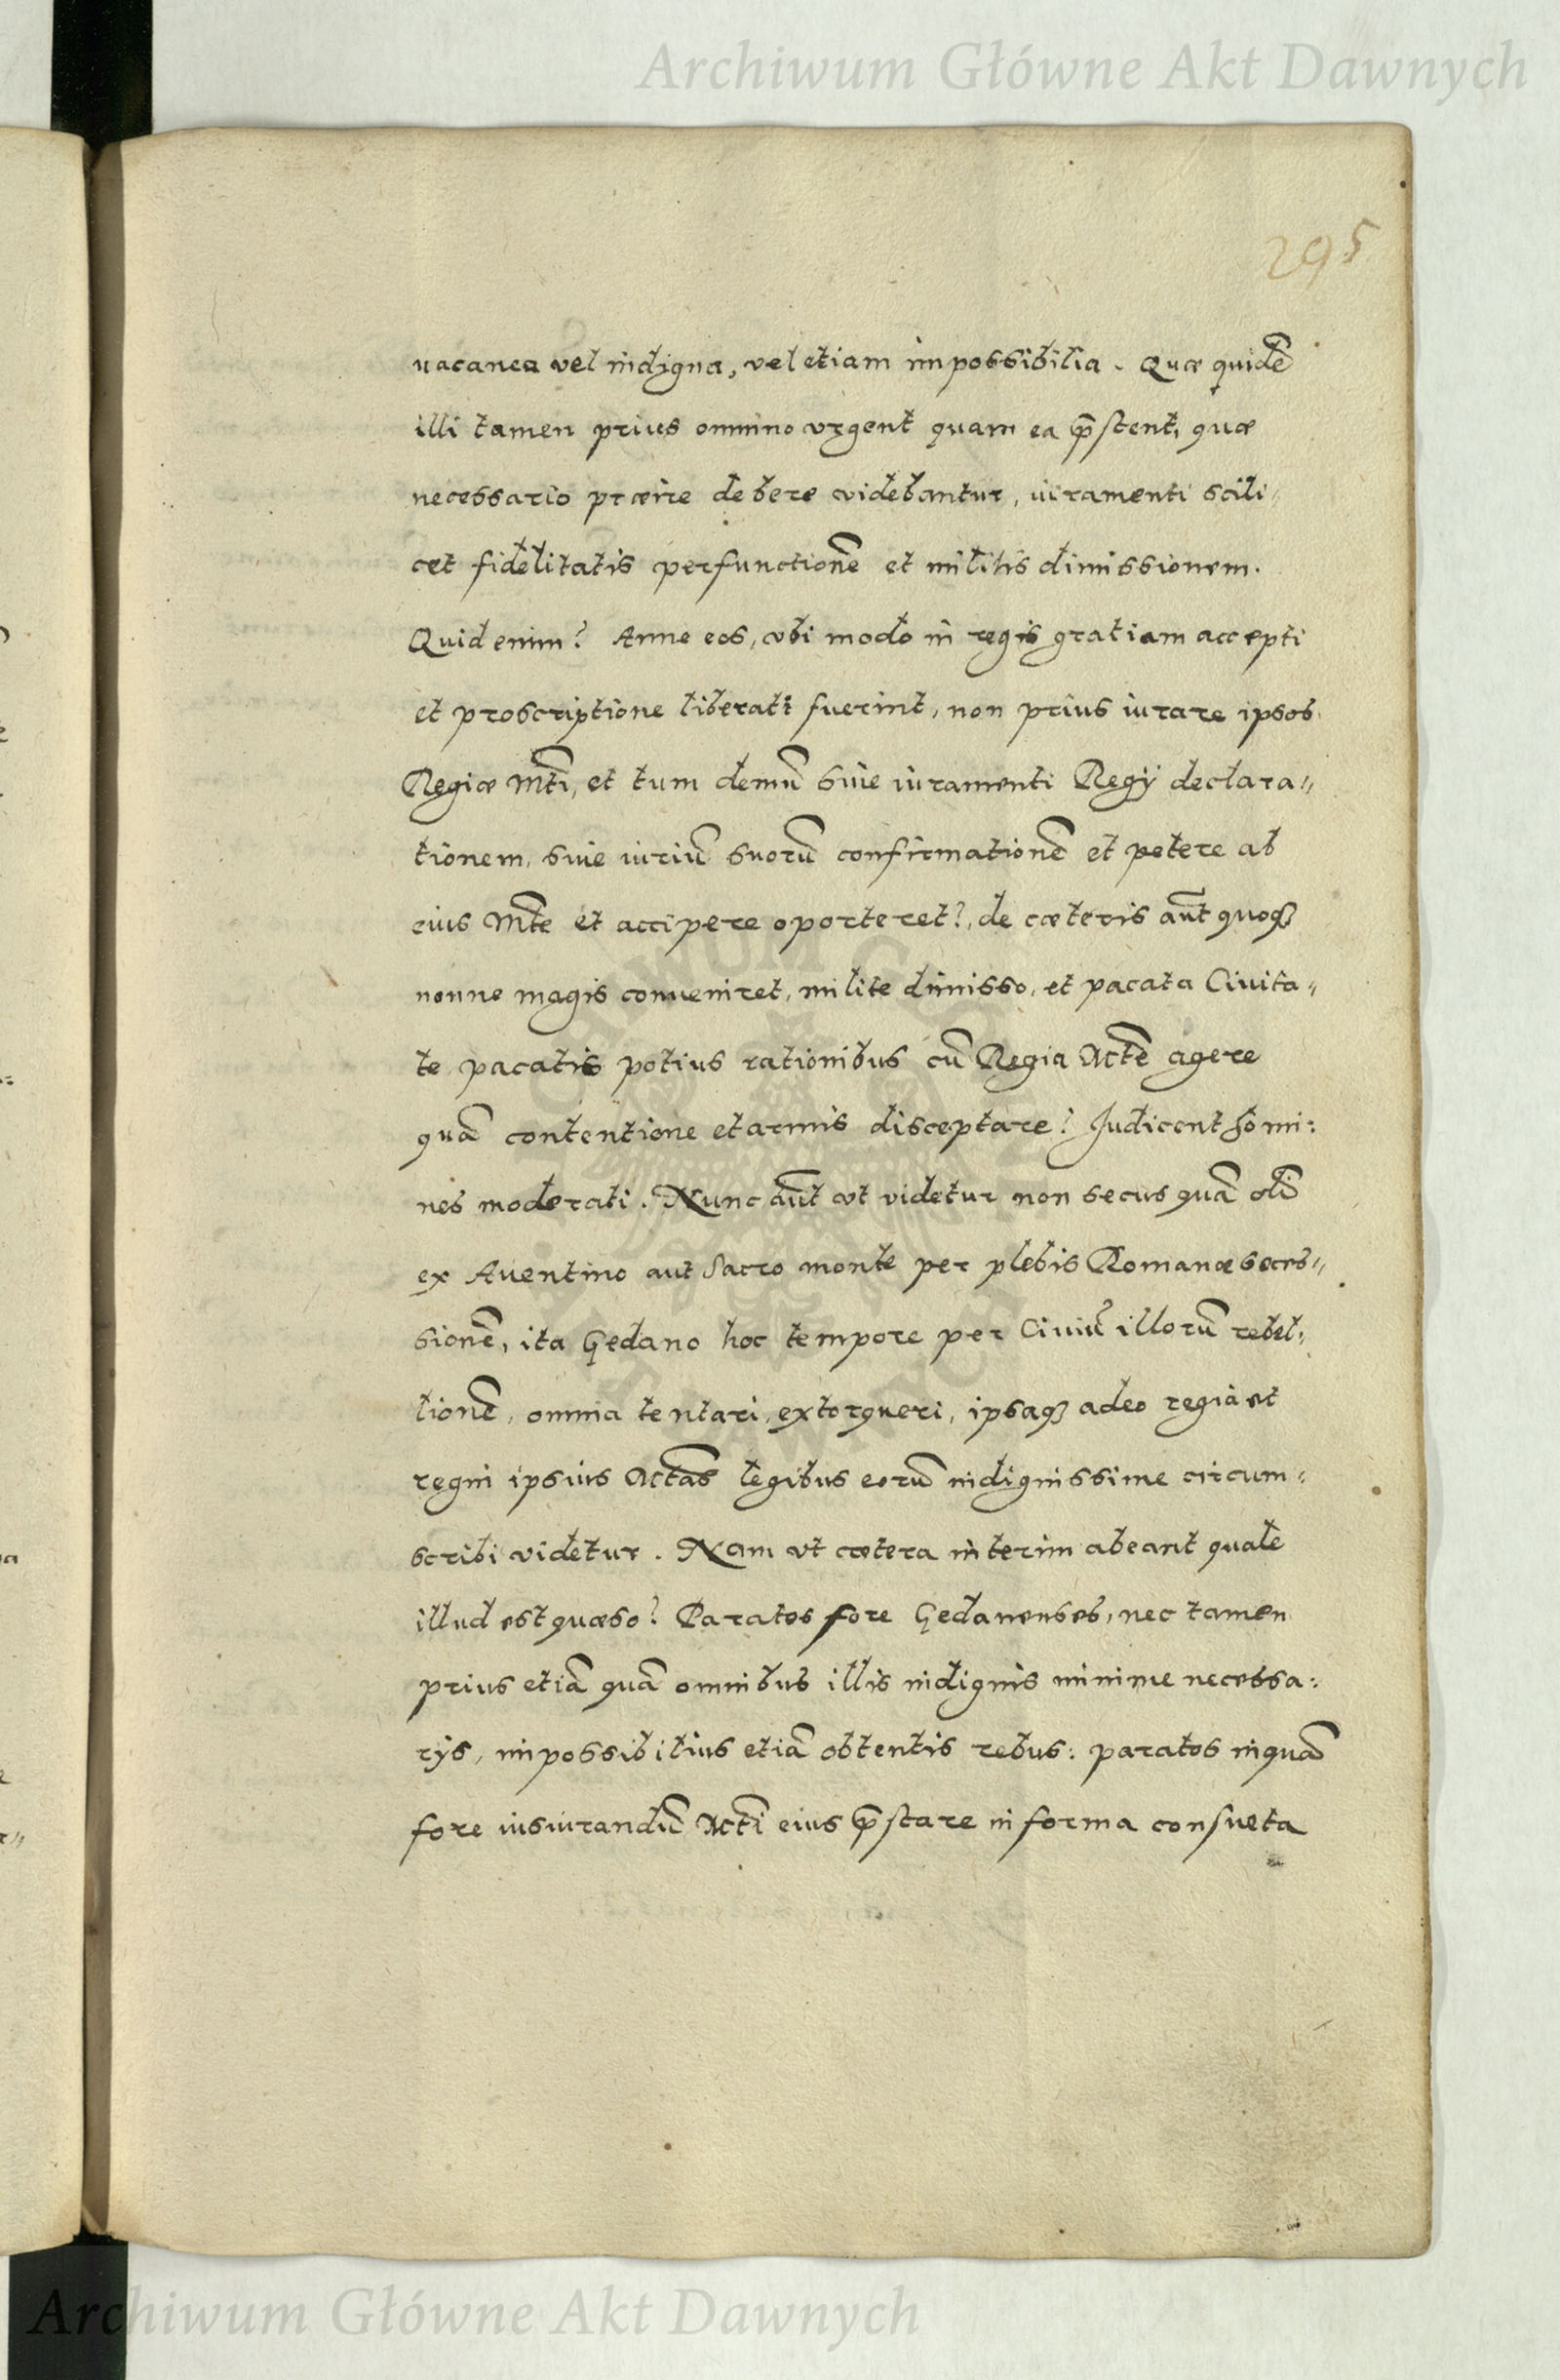 Archiwum Główne Akt Dawnych
295
uacanea vel indigna, vel etiam impossibilia. Quæ quidē
illi tamen prius omnino vrgent quam ea p̄stent, quæ
necessario præire debere videbantur, iuramenti scili-
cet fidelitatis perfunctionē et militis dimissionem.
Quid enim? Anne eos, vbi modo in regis gratiam accepti
et proscriptione liberati fuerint, non prius iurare ipsos
Regiæ Mti, et tum demū siue iuramenti Regÿ declara„
tionem, siue iuriū suorū confirmationē et petere ab
eius Mte et accipere oporteret?, de cæteris aūt quoqꝫ
nonne magis conueniret, milite dimisso, et pacata Ciuita„
te pacatis potius rationibus cū Regia Mte agere
quā contentione et armis disceptare? Iudicent homi:
nes moderati. Nunc aūt vt videtur non secus quā oli̅
ex Auentino aut Sacro monte per plebis Romanæ seces„
sionē, ita Gedano hoc tempore per Ciuiū illorū rebel„
lionē, omnia tentari, extorqueri, ipsaqꝫ adeo regia et
regni ipsius Mtas legibus eorū indignissime circum„
scribi videtur. Nam vt cætera interim abeant quale
illud est quæso? Paratos fore Gedanenses, nec tamen
prius etiā quā omnibus illis indignis minime necessa:
rÿs, impossibilius etiā obtentis rebus: paratos inquā
fore iusiurandū Mti eius p̄stare in forma consueta
Archiwum Główne Akt Dawnych